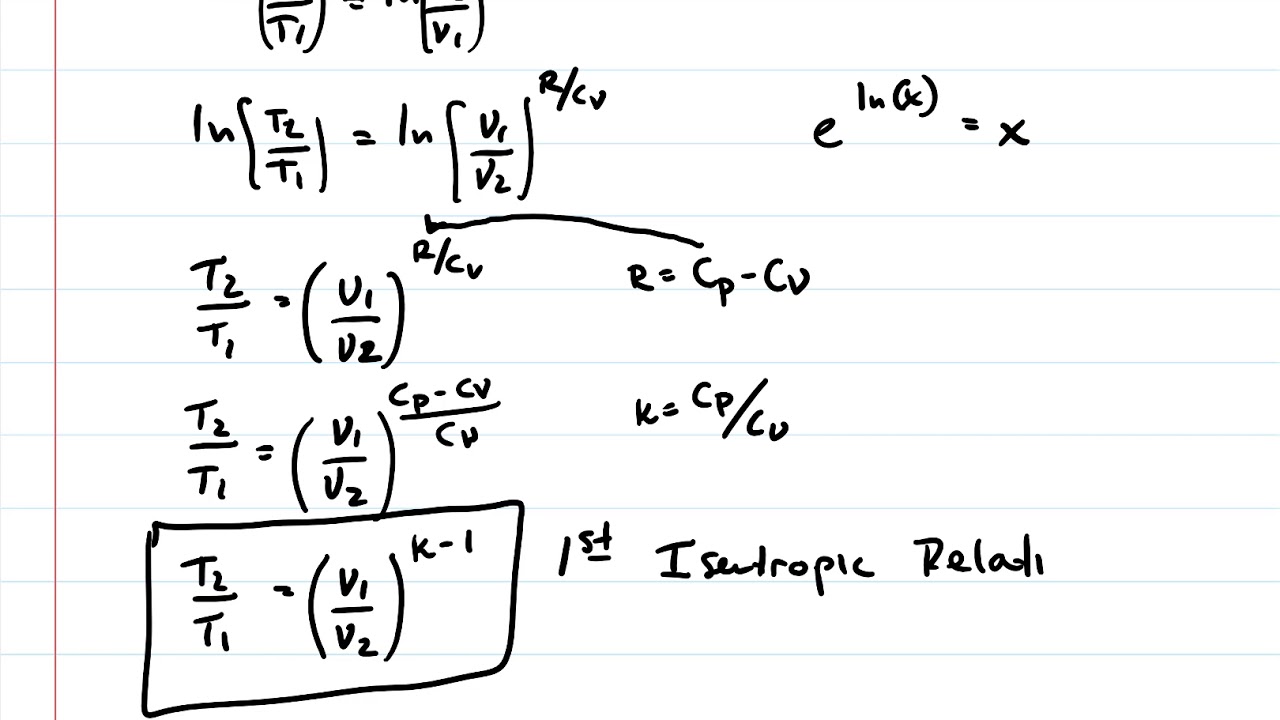 (T₁) = ln(V₁)
ln[T₂/T₁] = ln[V₁/V₂]^(R/Cv) e^(ln(x)) = x
T₂/T₁ = (V₁/V₂)^(R/Cv) R = Cp - Cv
T₂/T₁ = (V₁/V₂)^((Cp - Cv)/Cv) K = Cp/Cv
T₂/T₁ = (V₁/V₂)^(K-1) 1st Isentropic Relati